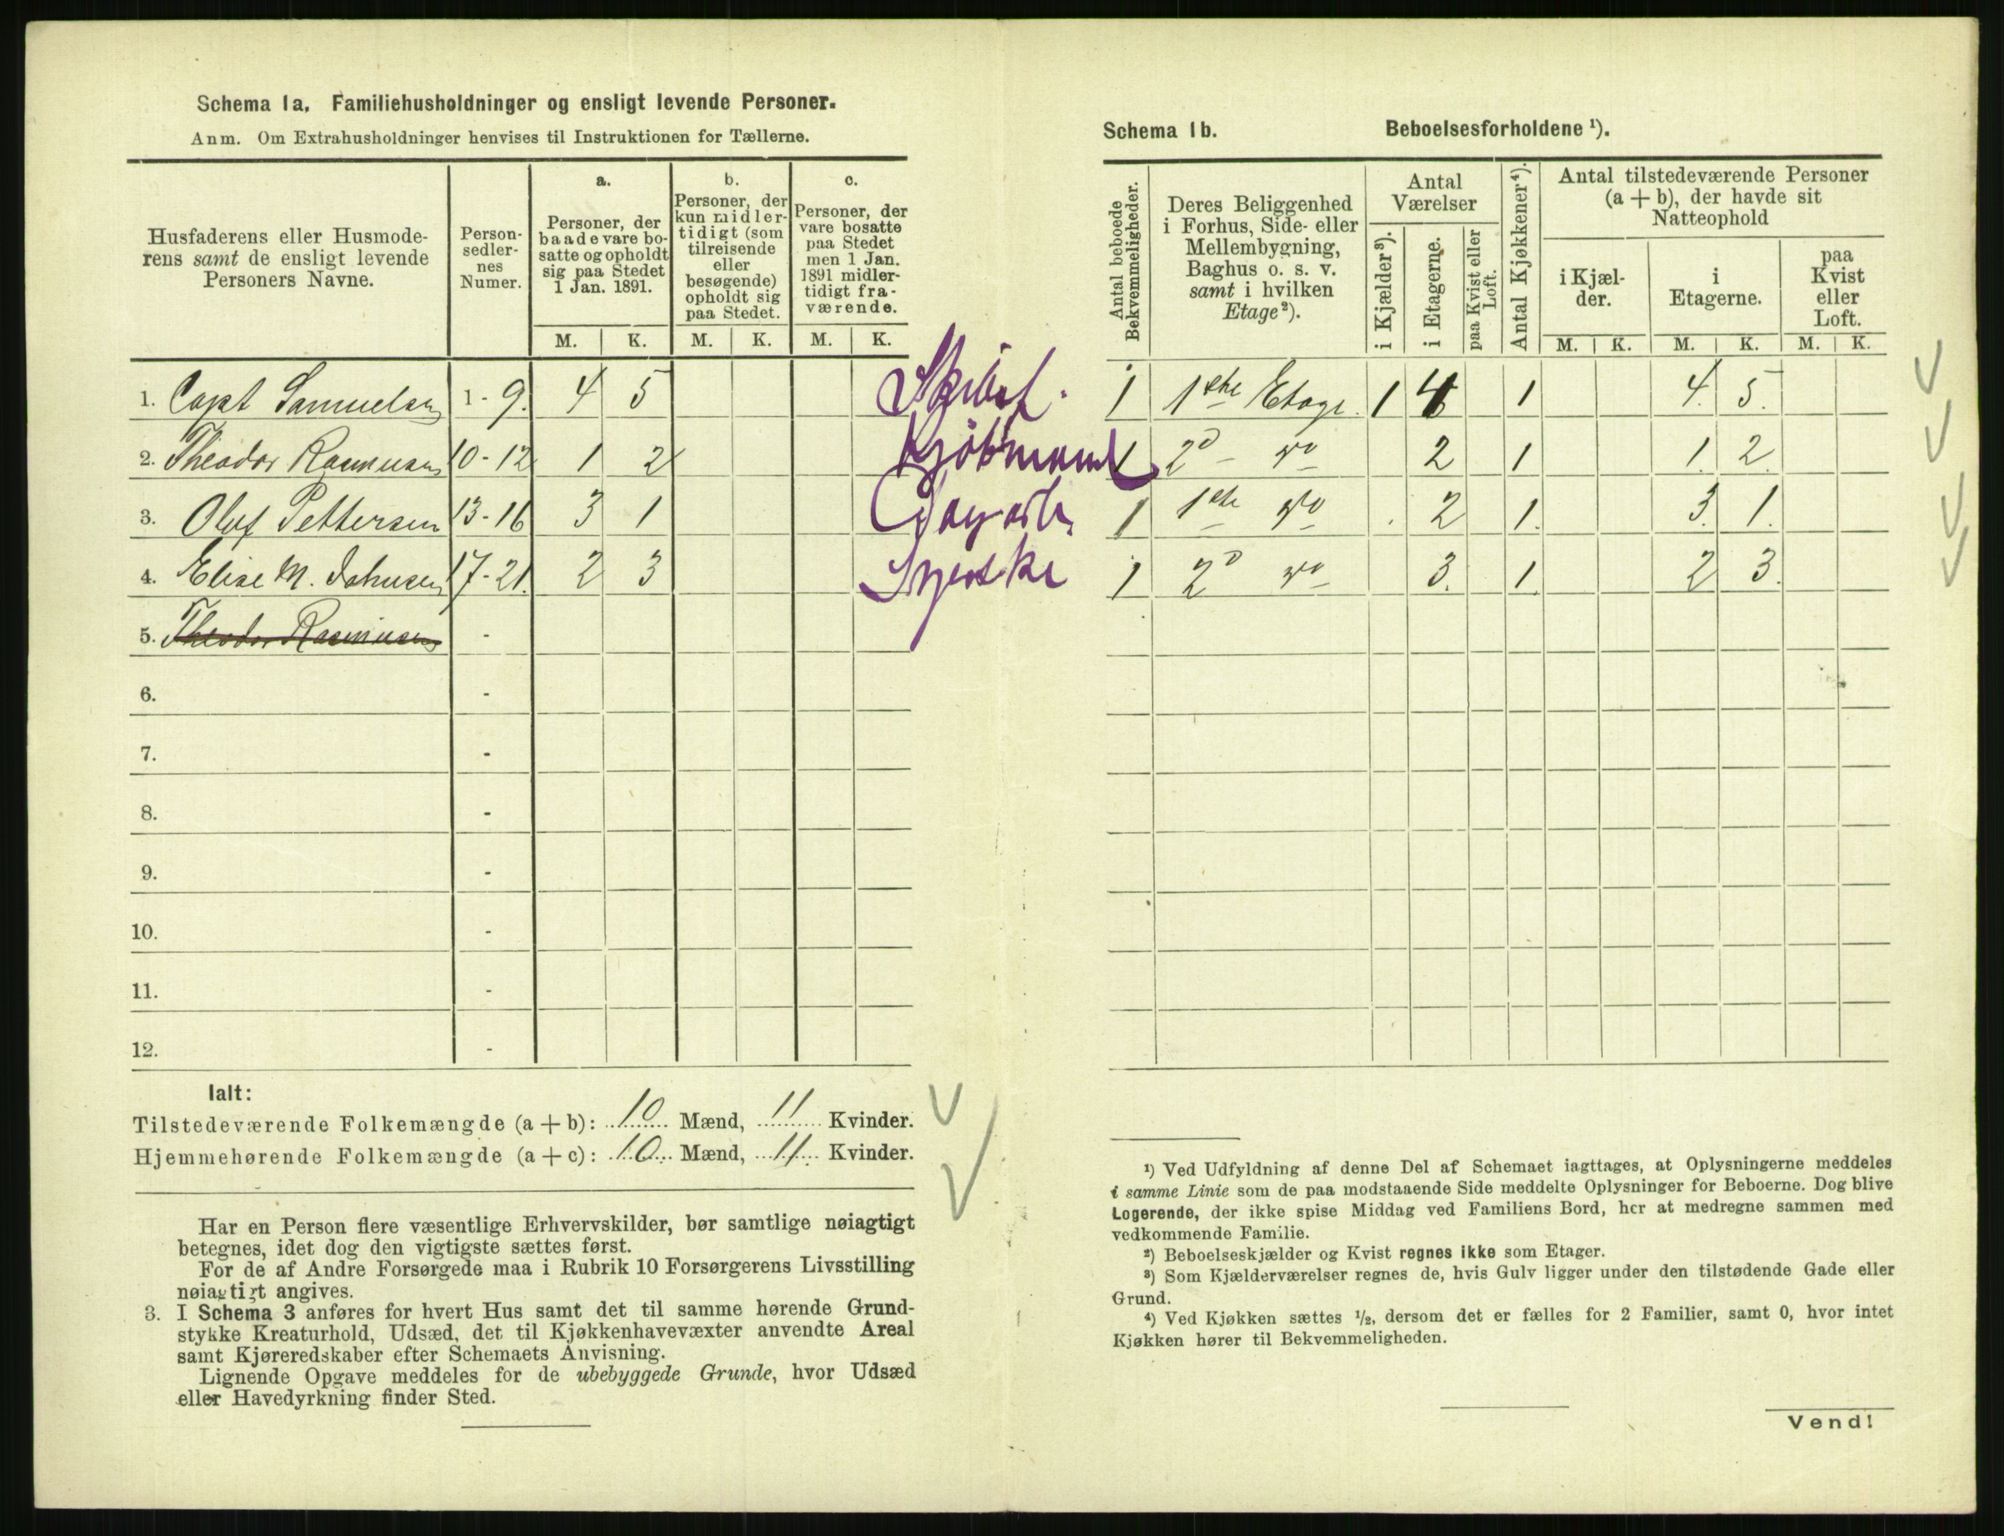 Schema 1a. Familiehusholdninger og ensligt levende Personer.
Anm. Om Extrahusholdninger henvises til Instruktionen for Tællerne.
Husfaderens eller Husmode-
rens samt de ensligt levende
Personers Navne.
Person-
sedler-
nes
Numer.
a.
Personer, der
baade vare bo-
satte og opholdt
sig paa Stedet
1 Jan. 1891.
b.
Personer, der
kun midler-
tidigt (som
tilreisende
eller
besøgende)
opholdt sig
paa Stedet.
c.
Personer, der
vare bosatte
paa Stedet
men 1 Jan.
1891 midler-
tidigt fra-
værende.
M. K. M. K. M. K.
1. Capt Samuelsen 1-9. 4 5
2. Theodor Rasmusen 10-12 1 2 Kjøbmand
3. Oluf Pettersen 13-16 3 1
4. Elise M. Johnsen 17-21. 2 3
5. Theodor Rasmusen -
6. -
7. -
8. -
9. -
10. -
11. -
12. -
Ialt:
Tilstedeværende Folkemængde (a + b): 10 Mænd, 11 Kvinder.
Hjemmehørende Folkemængde (a + c): 10 Mænd, 11 Kvinder.
Har en Person flere væsentlige Erhvervskilder, bør samtlige nøiagtigt
betegnes, idet dog den vigtigste sættes først.
For de af Andre Forsørgede maa i Rubrik 10 Forsørgerens Livsstilling
nøiagtigt angives.
3. I Schema 3 anføres for hvert Hus samt det til samme hørende Grund-
stykke Kreaturhold, Udsæd, det til Kjøkkenhavevæxter anvendte Areal
samt Kjøreredskaber efter Schemaets Anvisning.
Lignende Opgave meddeles for de ubebyggede Grunde, hvor Udsæd
eller Havedyrkning finder Sted.
Schema 1b. Beboelsesforholdene ¹).
Antal beboede
Bekvemmeligheder.
Deres Beliggenhed
i Forhus, Side- eller
Mellembygning,
Baghus o. s. v.
samt i hvilken
Etage²).
Antal
Værelser
i Kjælder³).
i Etagerne.
paa Kvist eller
Loft.
Antal Kjøkkener⁴).
Antal tilstedeværende Personer
(a + b), der havde sit
Natteophold
i Kjæl-
der.
i
Etagerne.
paa
Kvist
eller
Loft.
M. K. M. K. M. K.
1 1ste Etage. 1 4 1 4. 5.
1 2d do 2 1 1. 2.
1 1ste do 2 1. 3. 1.
1 2d do 3. 1. 2 3.
¹) Ved Udfyldning af denne Del af Schemaet iagttages, at Oplysningerne meddeles
i samme Linie som de paa modstaaende Side meddelte Oplysninger for Beboerne. Dog blive
Logerende, der ikke spise Middag ved Familiens Bord, her at medregne sammen med
vedkommende Familie.
²) Beboelseskjælder og Kvist regnes ikke som Etager.
³) Som Kjælderværelser regnes de, hvis Gulv ligger under den tilstødende Gade eller
Grund.
⁴) Ved Kjøkken sættes ½, dersom det er fælles for 2 Familier, samt 0, hvor intet
Kjøkken hører til Bekvemmeligheden.
Vend!